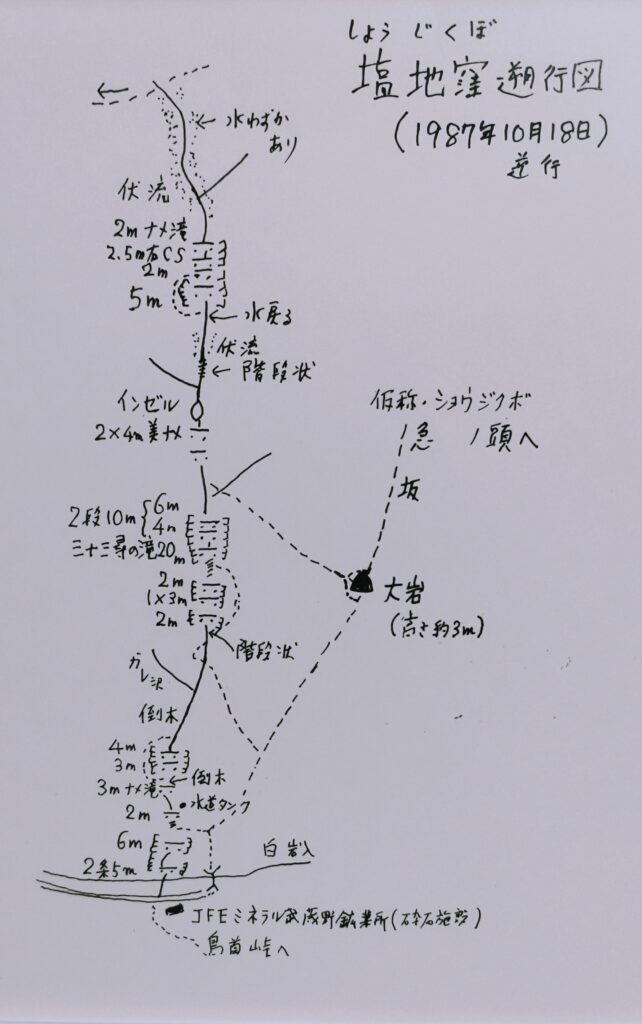 しょうじくぼ
塩地窪遡行図
(1987年10月18日)
遡行
水わずか
あり
伏流
2mナメ滝
2.5m右CS
2m
5m
水戻る
伏流
階段状
インゼル
2×4m美ナメ
仮称・ショウジクボ
ノ頭へ
急
坂
6m
2段10m
4m
三十三尋の滝20m
2m
1×3m
2m
大岩
(高さ約3m)
階段状
ガレ沢
倒木
4m
3m
倒木
3mナメ滝
水道タンク
2m
6m
白岩入
2条5m
JFEミネラル武蔵野鉱業所(砕石施設)
鳥首峠へ